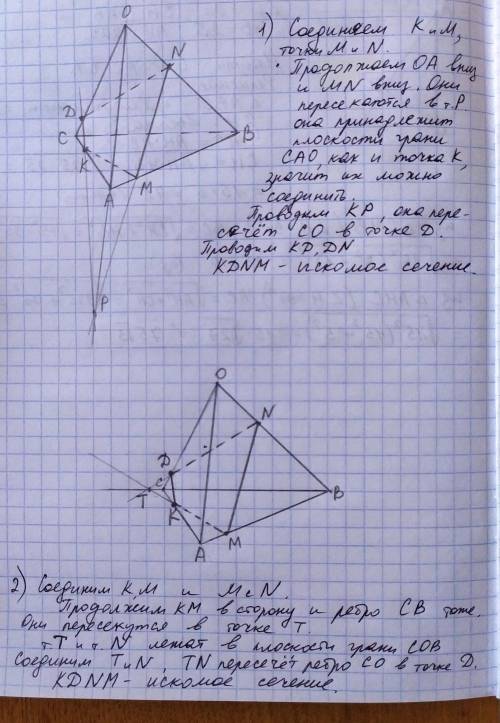 1) Соединяем К и М,
точки М и N.
Продолжаем ОА вниз
и MN вниз. Они
пересекаются в т.Р.
она принадлежит
плоскости грани
САО, как и точка К,
значит их можно
соединить.
Проводим КР, она пере-
сечёт СО в точке D.
Проводим KD, DN
KDNM – искомое сечение.
O
N
D
C
B
K
M
A
P
O
N
D
C
T
B
K
A
M
2) Соединим К,М и М с N.
Продолжим КМ в сторону и ребро СВ тоже.
Они пересекутся в точке Т.
т.Т и т.N лежат в плоскости грани СОВ
Соединим Т и N, TN пересечёт ребро СО в точке D.
KDNM – искомое сечение.